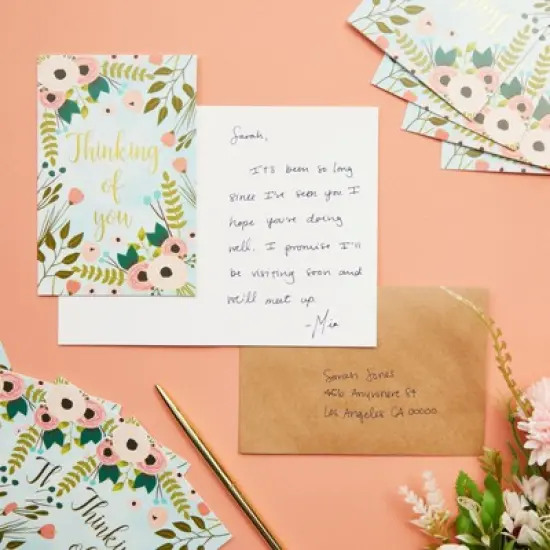 Thinking
of
you
Sarah,
It's been so long
since I've seen you I
hope you're doing
well. I promise I'll
be visiting soon and
we'll meet up.
-Mia
Sarah Jones
456 Anywhere St
Los Angeles CA 00000
Thinking
Thinking
of